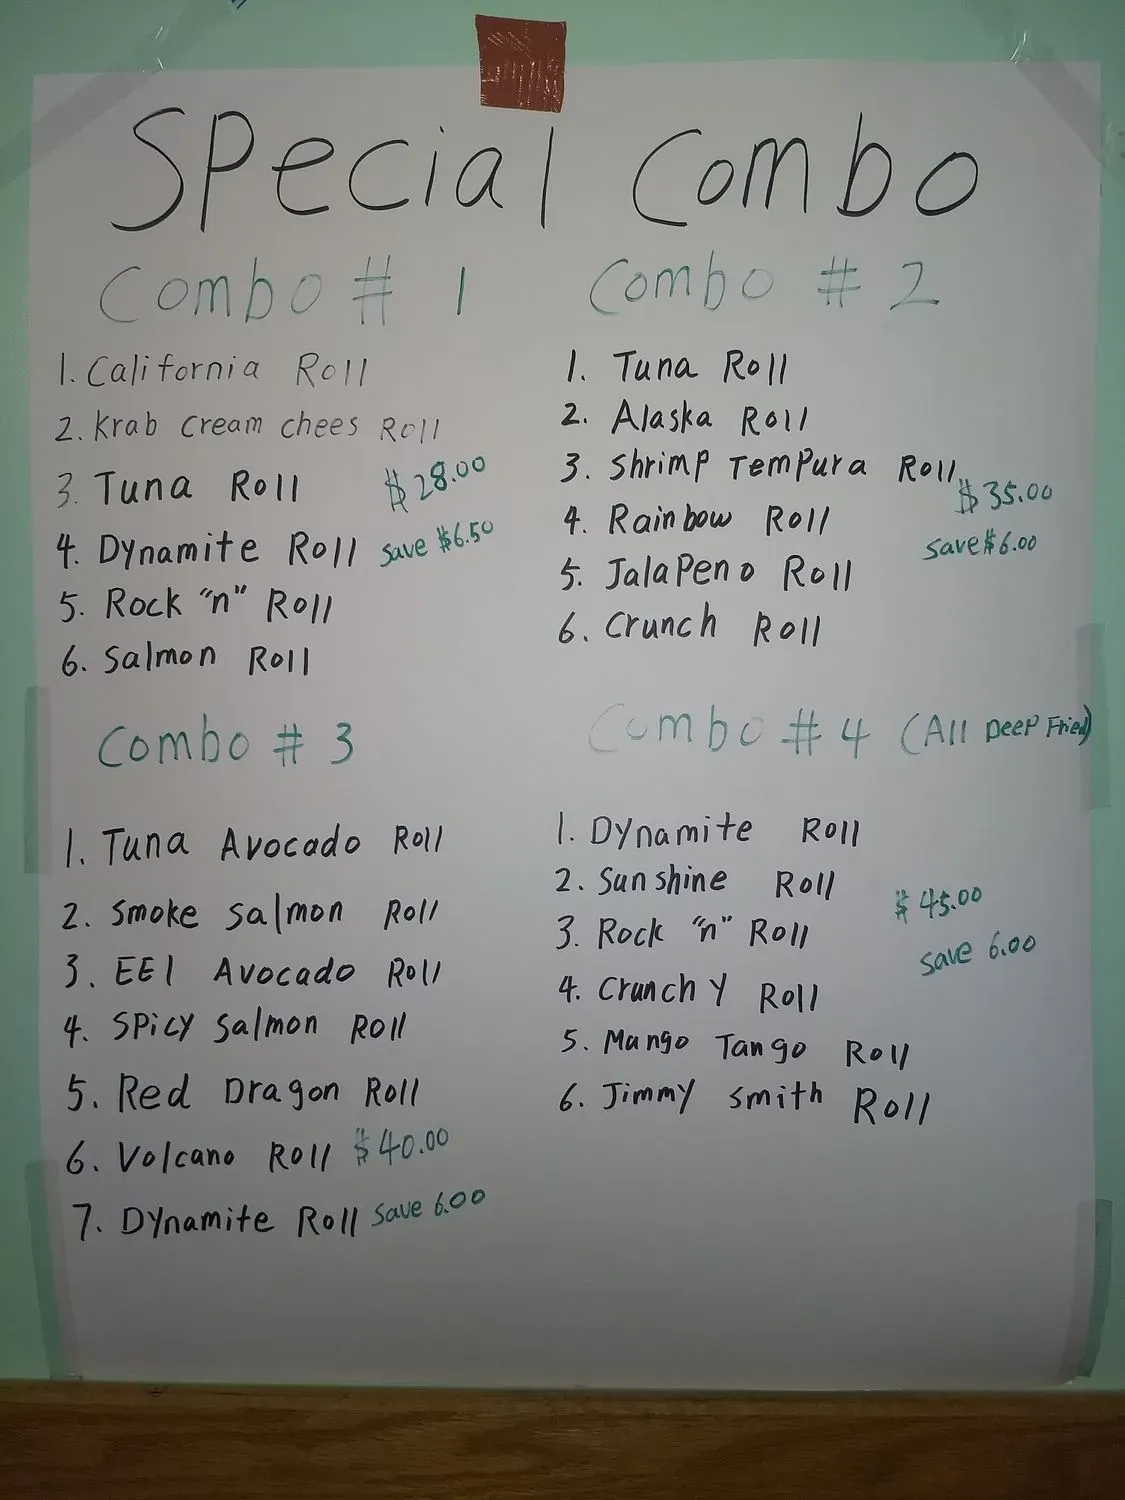 Special Combo
Combo # 1
1. California Roll
2. Krab Cream chees Roll
3. Tuna Roll $28.00
4. Dynamite Roll save $6.50
5. Rock "n" Roll
6. Salmon Roll
Combo # 2
1. Tuna Roll
2. Alaska Roll
3. Shrimp Tempura Roll
$35.00
4. Rainbow Roll
save $6.00
5. Jalapeno Roll
6. Crunch Roll
Combo # 3
1. Tuna Avocado Roll
2. Smoke Salmon Roll
3. EEl Avocado Roll
4. Spicy Salmon Roll
5. Red Dragon Roll
6. Volcano Roll $40.00
7. Dynamite Roll save 6.00
Combo # 4 (All Deep Fried)
1. Dynamite Roll
2. Sunshine Roll
$45.00
3. Rock "n" Roll
save 6.00
4. Crunchy Roll
5. Mango Tango Roll
6. Jimmy Smith Roll